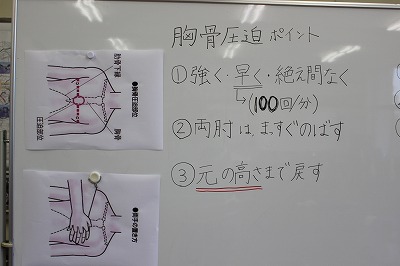 胸骨圧迫 ポイント
①強く・早く・絶え間なく
(100回/分)
②両肘は、まっすぐのばす
③元の高さまで戻す
肋骨下縁
●胸骨圧迫部位
胸骨
圧迫部位
●両手の置き方